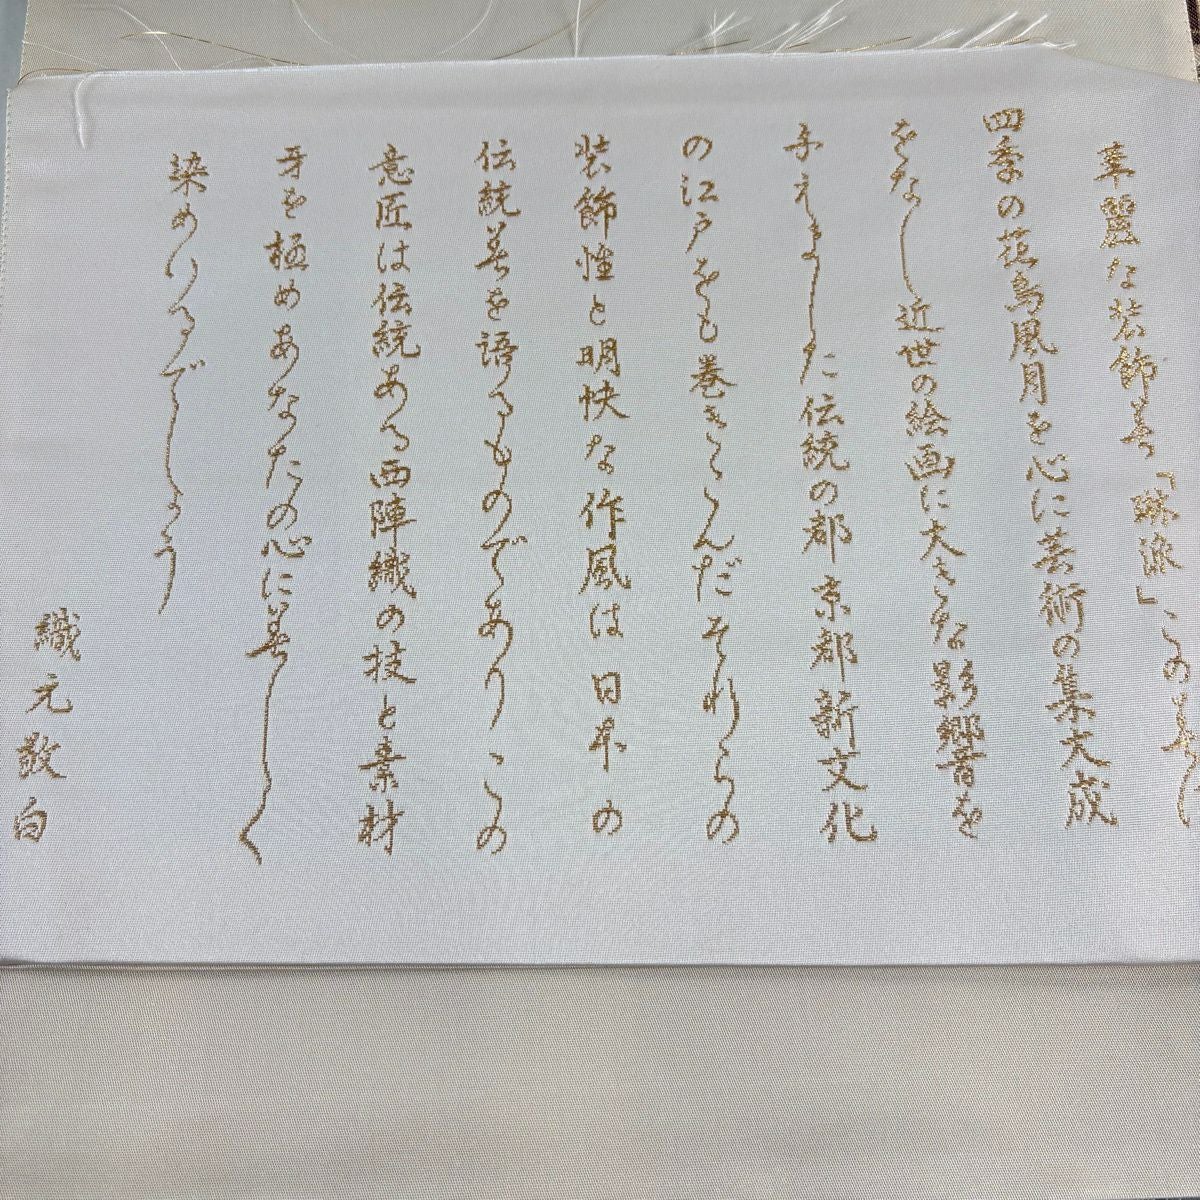 華麗な装飾美「琳派」この美し
四季の花鳥風月を心に芸術の集大成
をなし近世の絵画に大きな影響を
与えました伝統の都京都新文化
の江戸をも巻きこんだそれらの
装飾性と明快な作風は日本の
伝統美を語るものでありこの
意匠は伝統ある西陣織の技と素材
牙を極めあなたの心に美しく
染めいるでしょう
織元敬白